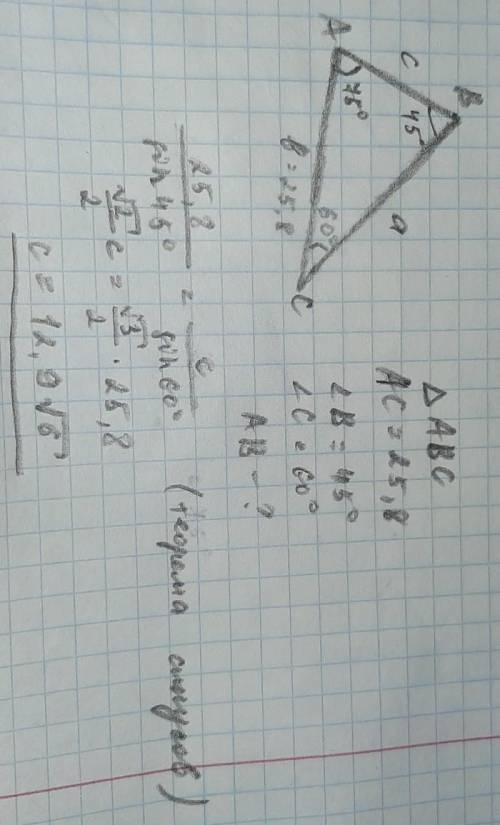 B
45
c
a
A
75°
60°
C
b = 25,8
△ ABC
AC = 25,8
∠B = 45°
∠C = 60°
AB - ?
25,8 / sin 45° = c / sin 60° (теорема синусов)
√2/2 c = √3/2 · 25,8
c = 12,9√6